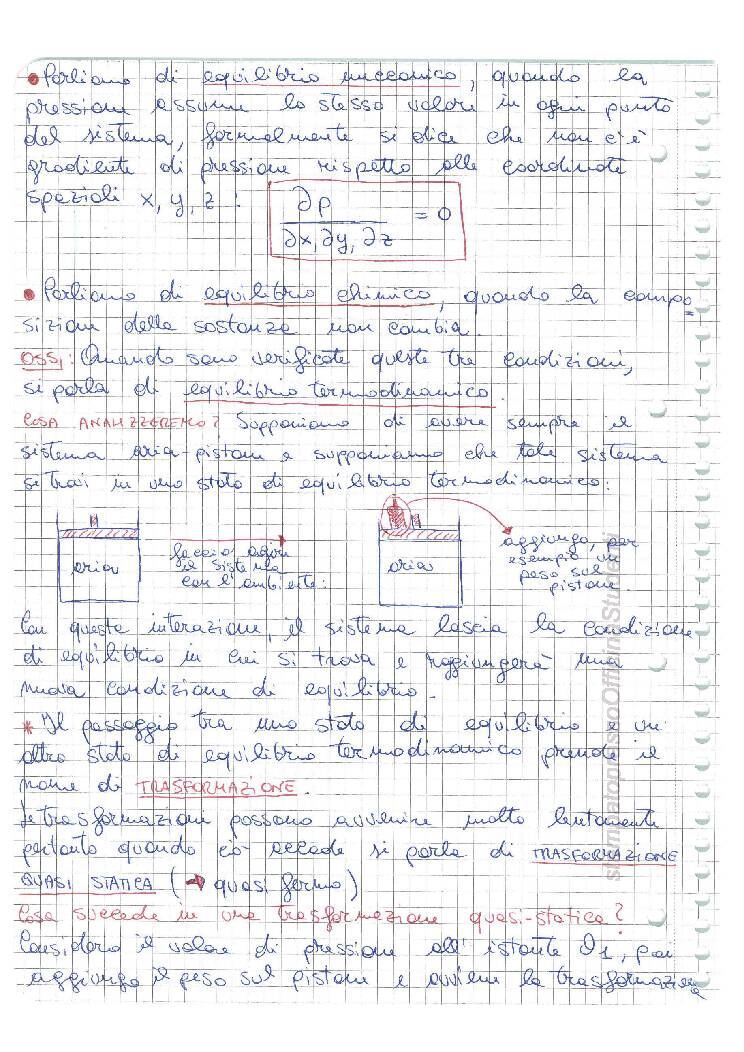 • Parliamo di equilibrio meccanico, quando la
pressione assume lo stesso valore in ogni punto
del sistema, formalmente si dice che non c'è
gradiente di pressione rispetto alle coordinate
spaziali x, y, z :
∂p
∂x, ∂y, ∂z = 0
• Parliamo di equilibrio chimico, quando la compo=
sizione della sostanza non cambia.
OSS: Quando sono verificate queste tre condizioni,
si parla di equilibrio termodinamico.
COSA ANALIZZEREMO? Supponiamo di avere sempre il
sistema aria-pistone e supponiamo che tale sistema
si trovi in uno stato di equilibrio termodinamico:
aria
faccio agire
il sistema
con l'ambiente:
aria
aggiungo, per
esempio un
peso sul
pistone
Con questa interazione, il sistema lascia la condizione
di equilibrio in cui si trova e raggiungerà una
nuova condizione di equilibrio.
* Il passaggio tra uno stato di equilibrio e un
altro stato di equilibrio termodinamico prende il
nome di TRASFORMAZIONE.
Le trasformazioni possono avvenire molto lentamente
pertanto quando ciò accade si parla di TRASFORMAZIONE
QUASI STATICA (→ quasi fermo)
Cosa succede in una trasformazione quasi-statica?
Considero il valore di pressione all'istante θ1, poi
aggiungo il peso sul pistone e avviene la trasformazione
stampatopressoOfficinaStudenti